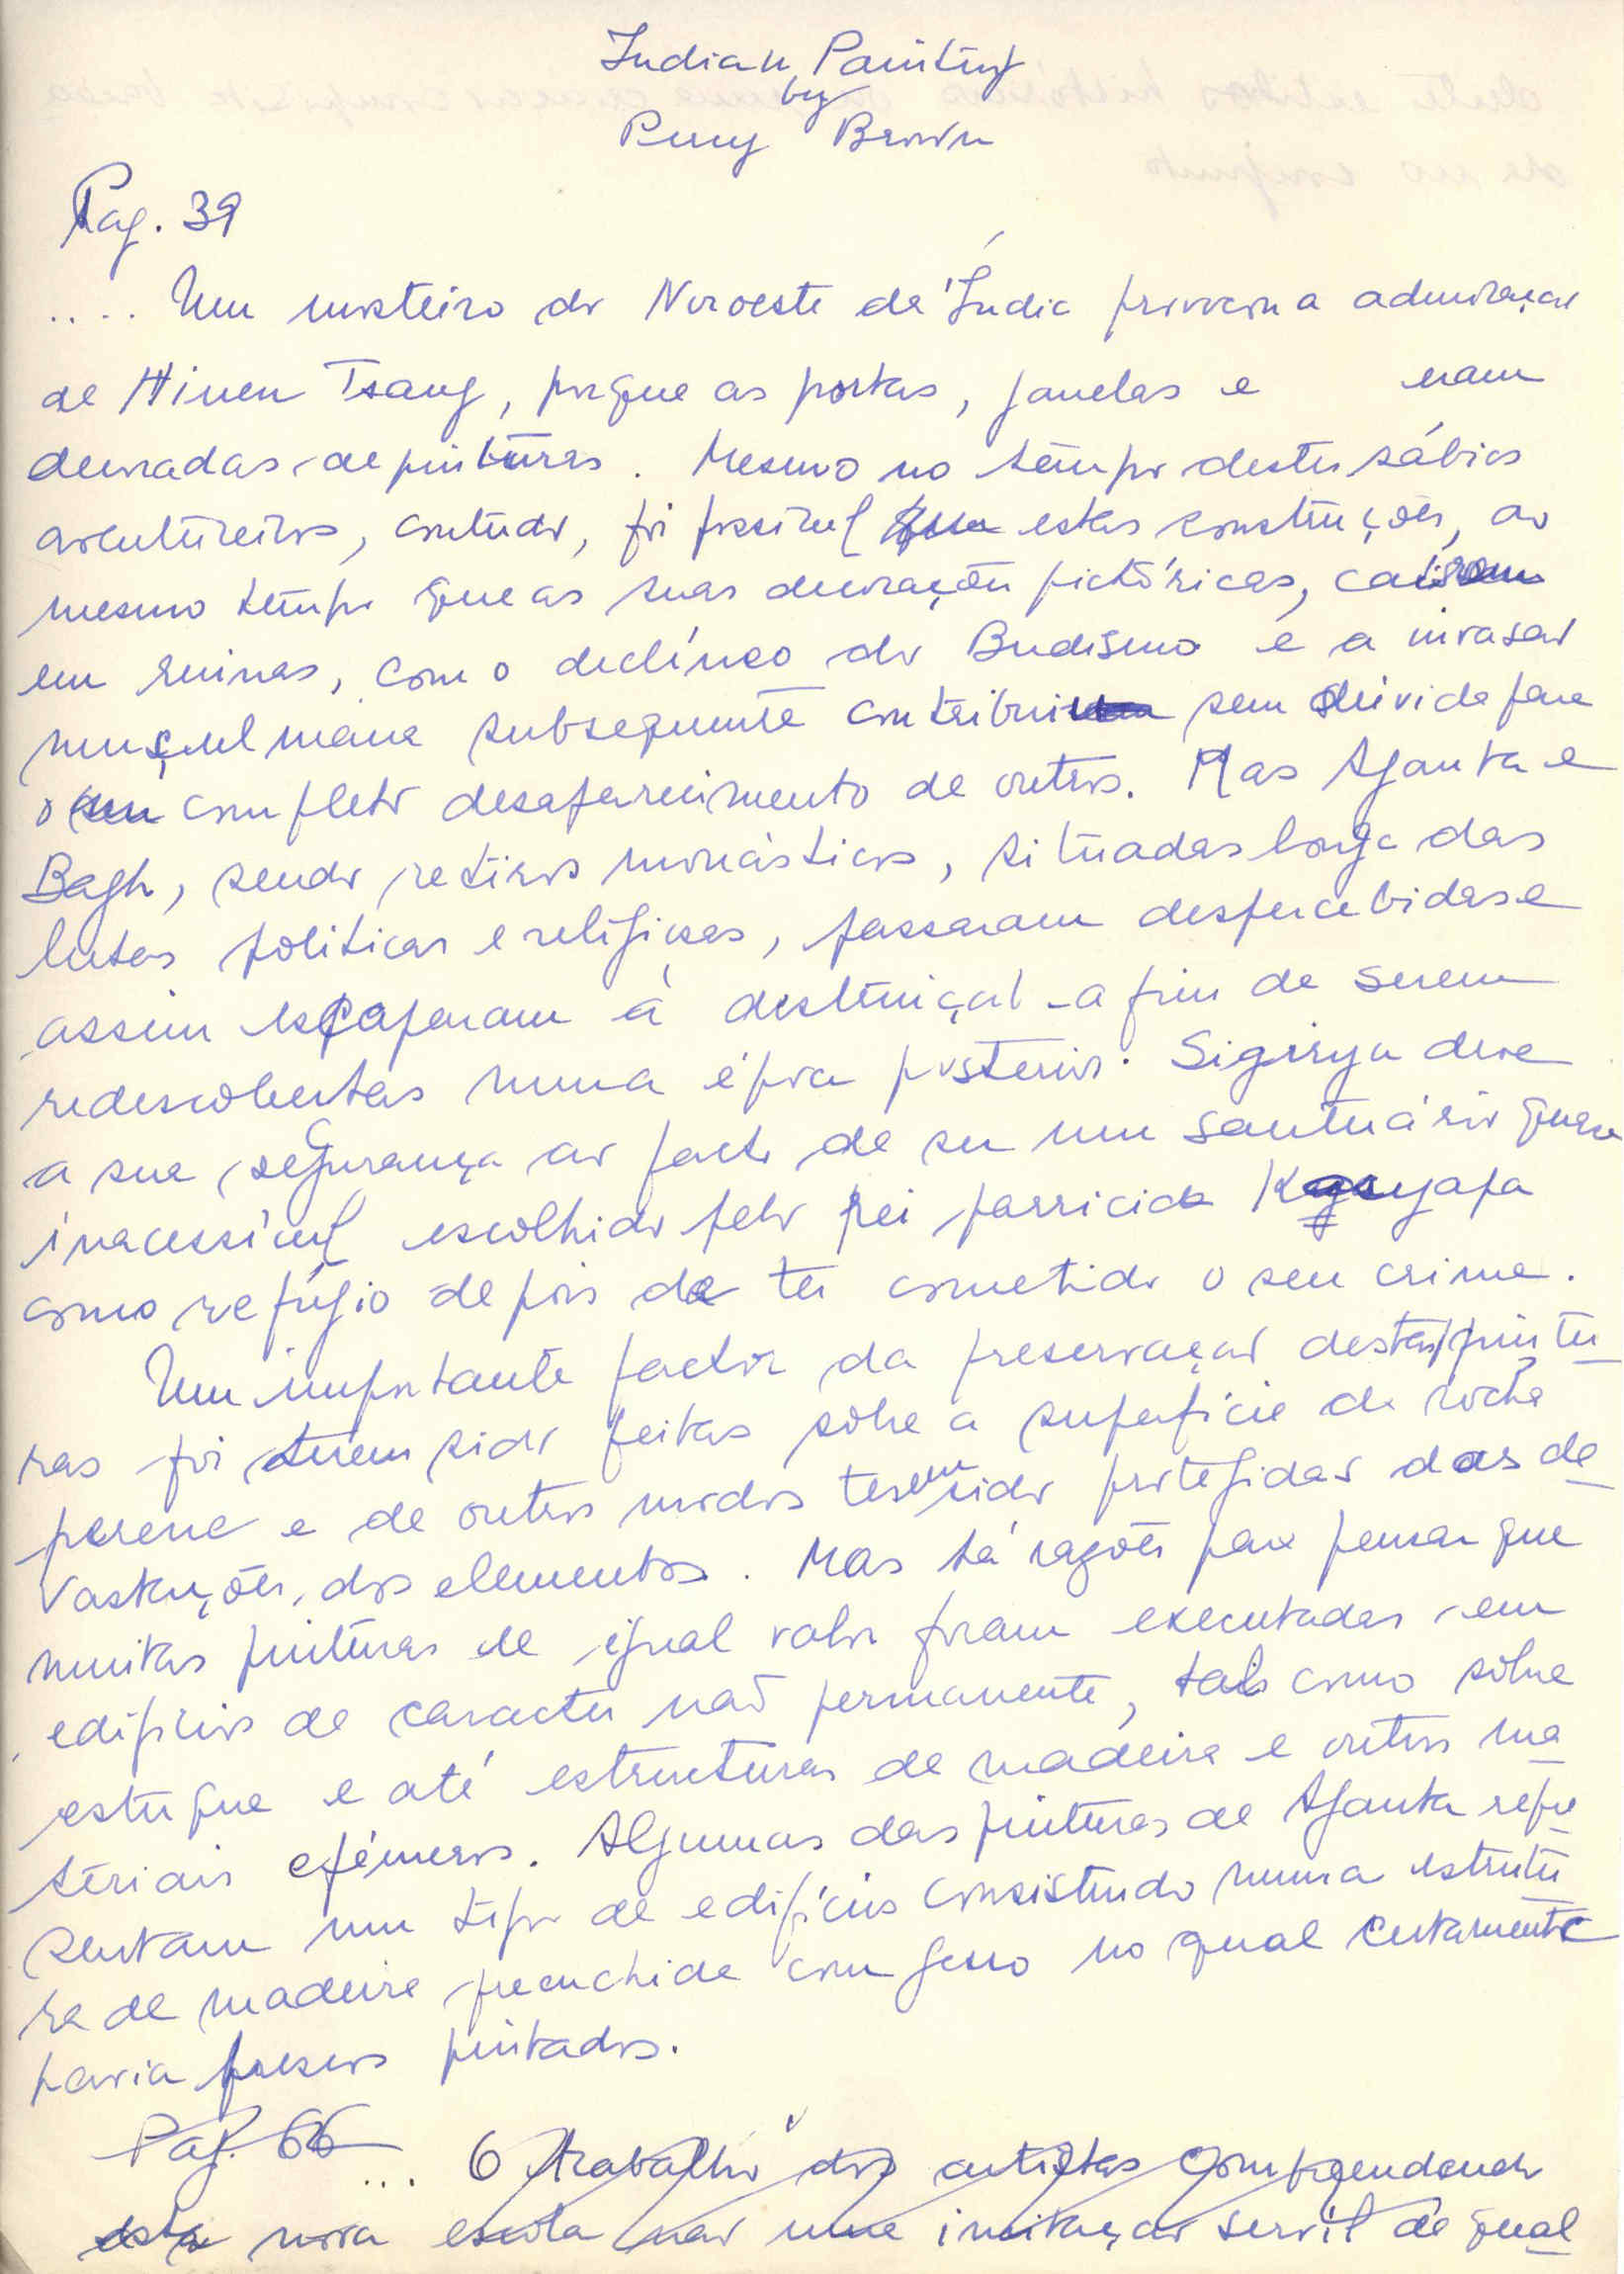 Indian Painting
by
Percy Brown
Pag. 39
.... Um mosteiro do Noroeste da Índia provocou a admiração
de Hiuen Tsang, porque as portas, janelas e eram
decoradas de pinturas. Mesmo no tempo destes sábios
aventureiros, contudo, foi possível que estas construções, ao
mesmo tempo que as suas decorações pictóricas, caissem
em ruinas, com o declíneo do Budismo e a invasão
muçulmana subsequente contribuiu sem dúvida para
o completo desaparecimento de outros. Mas Ajanta e
Bagh, sendo retiros monásticos, situadas longe das
lutas politicas e religiosas, passaram despercebidas e
assim escaparam á destruição - a fim de serem
redescobertas numa época posterior. Sigirya deve
a sua segurança ao facto de ser um santuário quase
inacessível escolhido pelo rei parricida Kasyapa
como refúgio depois de ter cometido o seu crime.
Um importante factor da preservação destas pintu
ras foi terem sido feitas sobre a superfície da rocha
perene e de outros modos terem sido protegidas das de
vastações dos elementos. Mas há razões para pensar que
muitas pinturas de igual valor foram executadas em
edifícios de caracter não permanente, tais como sobre
estuque e até estructuras de madeira e outros ma
teriais efémeros. Algumas das pinturas de Ajanta repre
sentam um tipo de edifícios consistindo numa estrutu
ra de madeira preenchida com gesso no qual certamente
havia frescos pintados.
Pag. 66 ... O trabalho dos artistas compreendendo
esta nova escola não uma imitação servil de qual